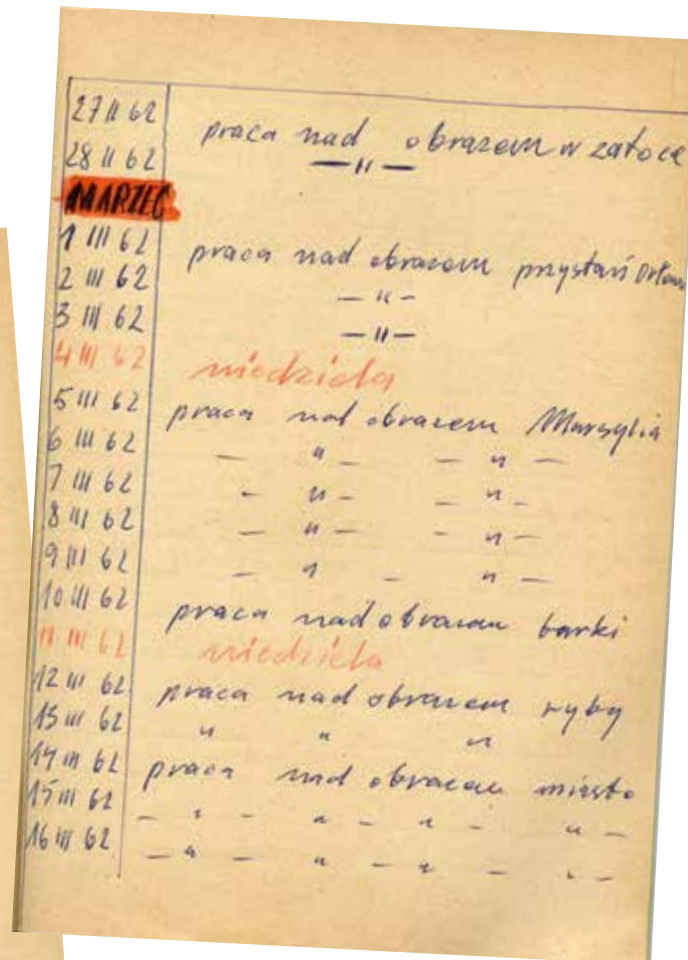 27 II 62 praca nad obrazem w zatoce
28 II 62 — " —
MARZEC
1 III 62 praca nad obrazem przystań Orłowo
2 III 62 — " —
3 III 62 — " —
4 III 62 niedziela
5 III 62 praca nad obrazem Marsylia
6 III 62 — " — — " —
7 III 62 — " — — " —
8 III 62 — " — — " —
9 III 62 — " — " —
10 III 62 praca nad obrazem barki
11 III 62 niedziela
12 III 62 praca nad obrazem ryby
13 III 62 " " "
14 III 62 praca nad obrazem miasto
15 III 62 — " — " — " — " —
16 III 62 — " — " — " — " —